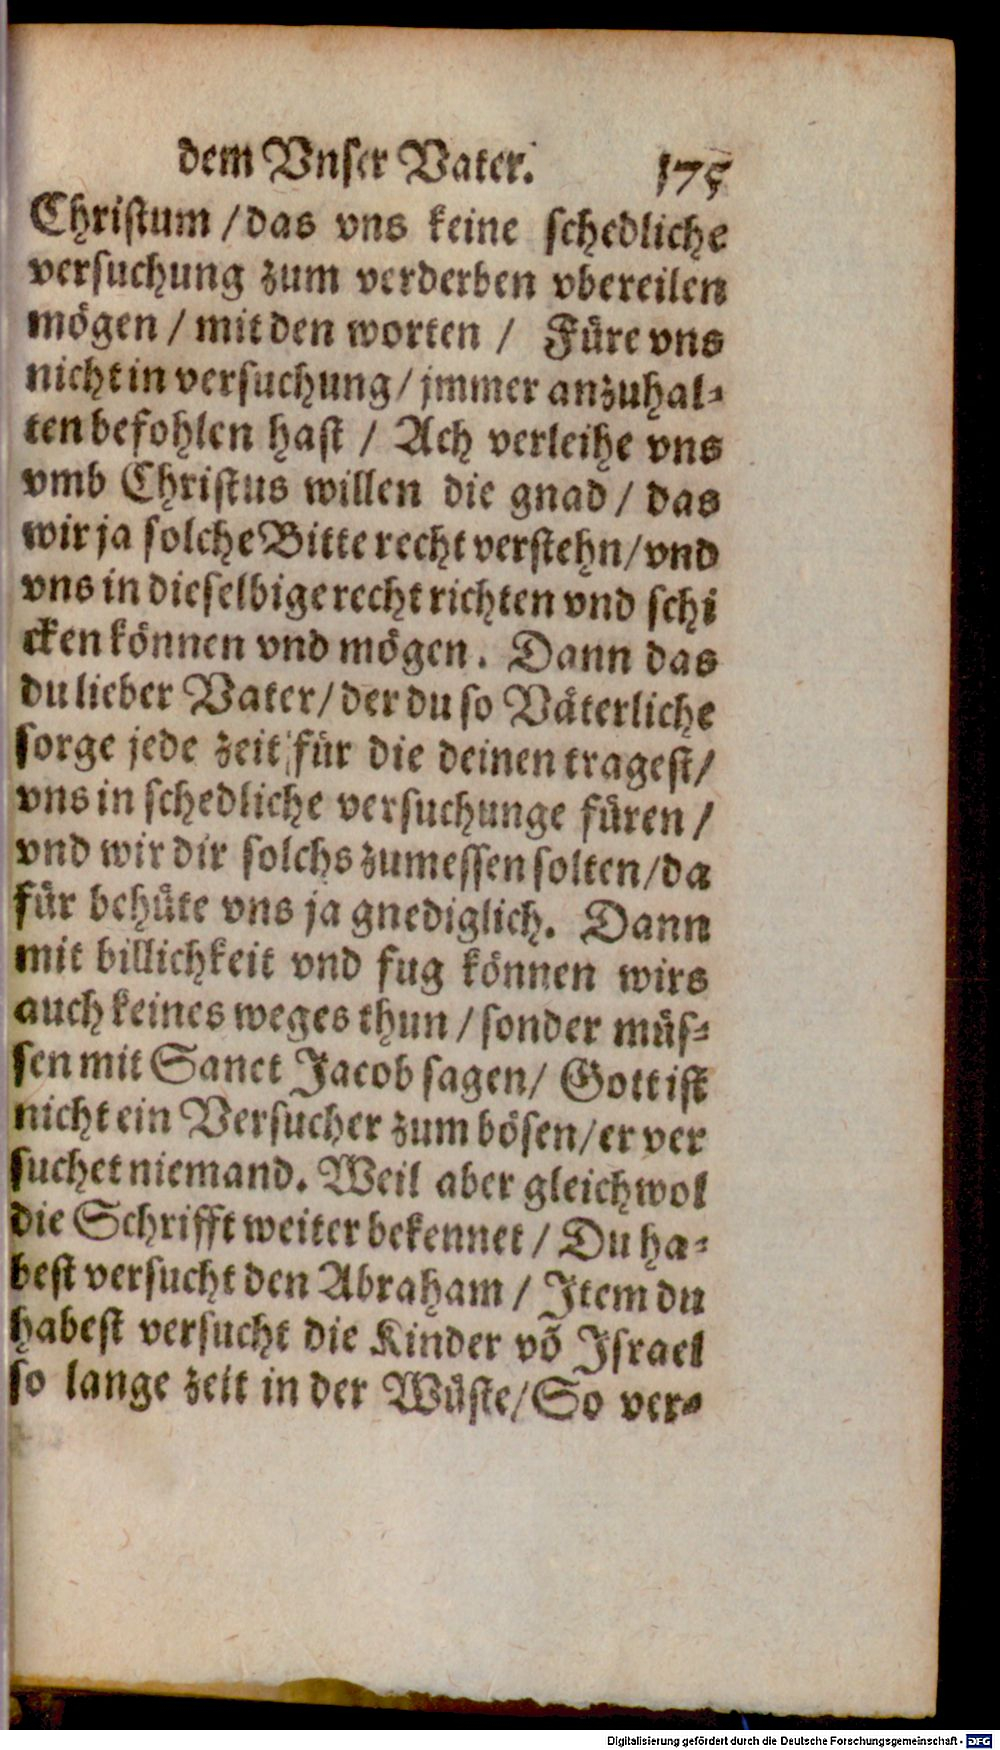 dem Vnser Vater. 175
Christum / das vns keine schedliche
versuchung zum verderben vbereilen
mögen / mit den worten / Füre vns
nicht in versuchung / jmmer anzuhal-
ten befohlen hast / Ach verleihe vns
vmb Christus willen die gnad / das
wir ja solche Bitte recht verstehn / vnd
vns in dieselbige recht richten vnd schi
cken können vnd mögen. Dann das
du lieber Vater / der du so Väterliche
sorge jede zeit für die deinen tragest /
vns in schedliche versuchunge füren /
vnd wir dir solchs zumessen solten / da
für behüte vns ja gnediglich. Dann
mit billichkeit vnd fug können wirs
auch keines weges thun / sonder müs-
sen mit Sanct Jacob sagen / Gott ist
nicht ein Versucher zum bösen / er ver
suchet niemand. Weil aber gleichwol
die Schrifft weiter bekennet / Du ha-
best versucht den Abraham / Item du
habest versucht die Kinder võ Israel
so lange zeit in der Wüste / So ver-
Digitalisierung gefördert durch die Deutsche Forschungsgemeinschaft - DFG